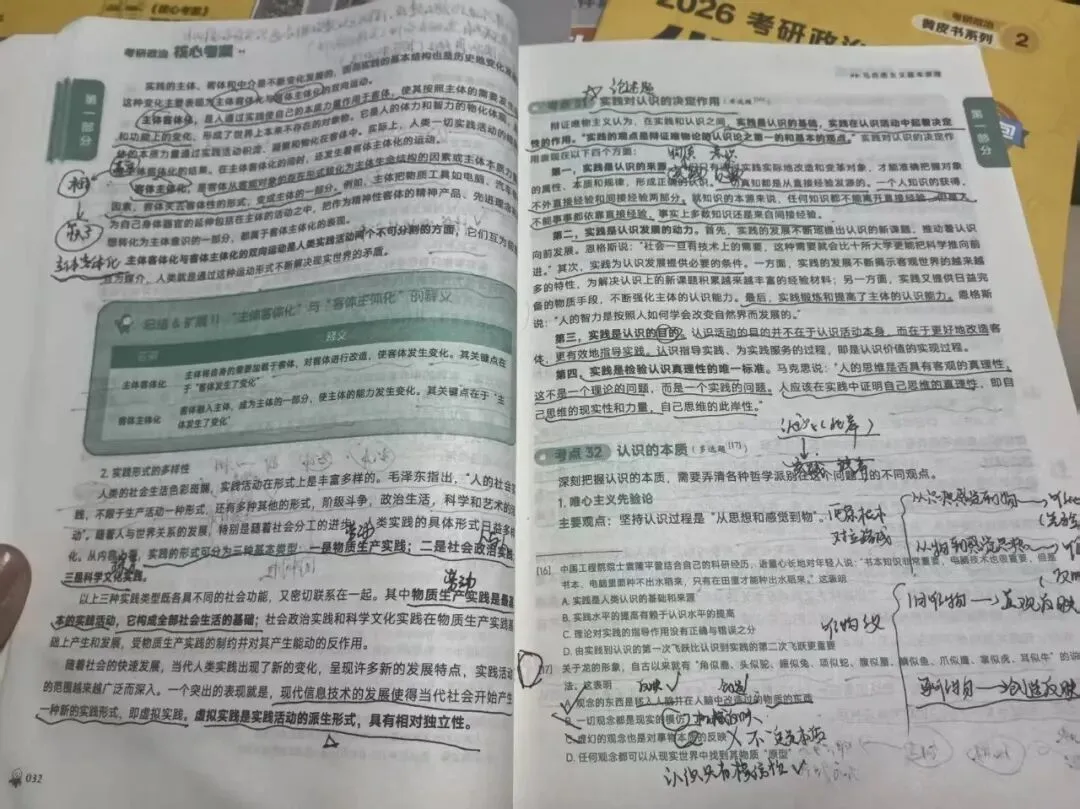 2026 考研政治
考研政治
黄皮书系列 2
《核心考案》
考研政治 核心考案
第一部分
实践的主体、客体和中介是不断变化发展的，因而实践的基本结构也是历史地变化
这种变化主要表现为主体客体化与客体主体化的双向运动。
主体客体化，是人通过实践使自己的本质力量作用于客体，使其按照主体的需要发生
和功能上的变化，形成了世界上本来不存在的对象物。它是人的体力和智力的物化体现。
的本质力量通过实践活动积淀、凝聚和物化在客体中。实际上，人类一切实践活动的
客体化的结果。在主体客体化的同时，还发生着客体主体化的运动。
客体主体化，是客体从客观对象的存在形式转化为主体生命结构的因素或主体本质力
因素，客体失去客体性的形式，变成主体的一部分。例如，主体把物质工具如电脑、汽车
为自己身体器官的延伸包括在主体的活动之中，把作为精神性客体的精神产品、先进理
想转化为主体意识的一部分，都属于客体主体化的表现。
主体客体化与客体主体化的双向运动是人类实践活动两个不可分割的方面，它们互为
互为媒介，人类就是通过这种运动形式不断解决现实世界的矛盾。
总结 & 扩展11 “主体客体化”与“客体主体化”的释义
释义
主体客体化 主体将自身的需要加载于客体，对客体进行改造，使客体发生变化。其关键点在
于“客体发生了变化”
客体主体化 客体融入主体，成为主体的一部分，使主体的能力发生变化。其关键点在于“主
体发生了变化”
2. 实践形式的多样性
人类的社会生活色彩斑斓，实践活动在形式上是丰富多样的。毛泽东指出，“人的社会
践，不限于生产活动一种形式，还有多种其他的形式，阶级斗争，政治生活，科学和艺术的
动”。随着人与世界关系的发展，特别是随着社会分工的进步，人类实践的具体形式日益多样
化。从内容上看，实践的形式可分为三种基本类型：一是物质生产实践；二是社会政治实践
三是科学文化实践。
劳动
以上三种实践类型既各具不同的社会功能，又密切联系在一起。其中物质生产实践是最基
本的实践活动，它构成全部社会生活的基础；社会政治实践和科学文化实践在物质生产实践基
础上产生和发展，受物质生产实践的制约并对其产生能动的反作用。
随着社会的快速发展，当代人类实践出现了新的变化，呈现许多新的发展特点，实践活动
的范围越来越广泛而深入。一个突出的表现就是，现代信息技术的发展使得当代社会开始产生
一种新的实践形式，即虚拟实践。虚拟实践是实践活动的派生形式，具有相对独立性。
032
马克思主义基本原理
第一部分
论述题
考点 31 实践对认识的决定作用（多选题[16]）
辩证唯物主义认为，在实践和认识之间，实践是认识的基础，实践在认识活动中起着决定
性的作用。“实践的观点是辩证唯物论的认识论之第一的和基本的观点。”实践对认识的决定作
用表现在以下四个方面：
第一，实践是认识的来源。人们只有通过实践实际地改造和变革对象，才能准确把握对象
的属性、本质和规律，形成正确的认识。一切真知都是从直接经验发源的。一个人知识的获得，
不外直接经验和间接经验两部分。就知识的本源来说，任何知识都不能离开直接经验，但是人
不能事事都依靠直接经验，事实上多数知识还是来自间接经验。
第二，实践是认识发展的动力。首先，实践的发展不断地提出认识的新课题，推动着认识
向前发展。恩格斯说：“社会一旦有技术上的需要，这种需要就会比十所大学更能把科学推向前
进。”其次，实践为认识发展提供必要的条件。一方面，实践的发展不断揭示客观世界的越来越
多的特性，为解决认识上的新课题积累越来越丰富的经验材料；另一方面，实践又提供日益完
备的物质手段，不断强化主体的认识能力。最后，实践锻炼和提高了主体的认识能力。恩格斯
说：“人的智力是按照人如何学会改变自然界而发展的。”
第三，实践是认识的目的。认识活动的目的并不在于认识活动本身，而在于更好地改造客
体，更有效地指导实践。认识指导实践、为实践服务的过程，即是认识价值的实现过程。
第四，实践是检验认识真理性的唯一标准。马克思说：“人的思维是否具有客观的真理性，
这不是一个理论的问题，而是一个实践的问题。人应该在实践中证明自己思维的真理性，即自
己思维的现实性和力量，自己思维的此岸性。”
考点 32 认识的本质（多选题[17]）
深刻把握认识的本质，需要弄清各种哲学派别在这个问题上的不同观点。
1. 唯心主义先验论
主要观点：坚持认识过程是“从思想和感觉到物”。
对立路线
[16] 中国工程院院士袁隆平曾结合自己的科研经历，语重心长地对年轻人说：“书本知识非常重要，电脑技术也很重要，但是
书本、电脑里面种不出水稻来，只有在田里才能种出水稻来。”这表明
A. 实践是人类认识的基础和来源
B. 实践水平的提高有赖于认识水平的提高
C. 理论对实践的指导作用没有正确与错误之分
D. 由实践到认识的第一次飞跃比认识到实践的第二次飞跃更重要
旧唯物→直观反映
[17] 关于龙的形象，自古以来就有“角似鹿、头似驼、眼似兔、项似蛇、腹似蜃、鳞似鱼、爪似鹰、掌似虎、耳似牛”的说
法。这表明
A. 观念的东西是移入人脑并在人脑中改造过的物质的东西
B. 一切观念都是现实的模仿
C. 虚幻的观念也是对事物本质的反映
D. 任何观念都可以从现实世界中找到其物质“原型”